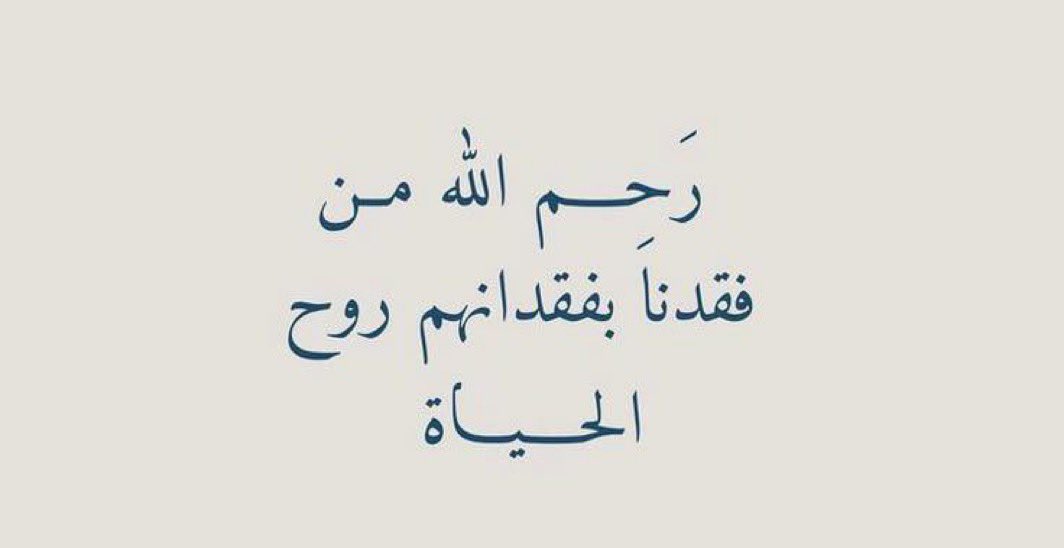 رَحِـــم الله مـن
فقدناَ بفقدانهم روح
الحـــيــاة